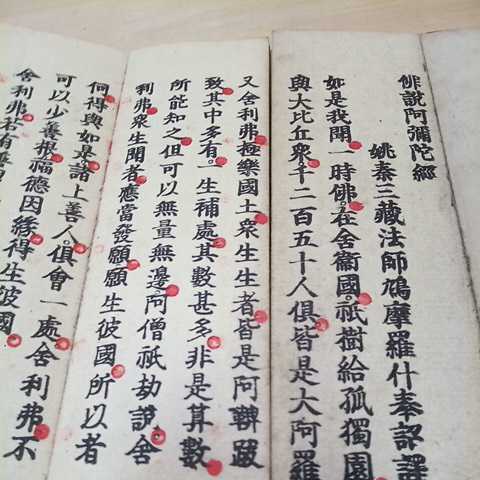 佛說阿彌陀經
姚秦三藏法師鳩摩羅什奉詔譯
如是我聞一時佛在舍衞國祇樹給孤獨園
與大比丘衆千二百五十人俱皆是大阿羅
又舍利弗極樂國土衆生生者皆是阿鞞跋
致其中多有一生補處其數甚多非是算數
所能知之但可以無量無邊阿僧祇劫說舍
利弗衆生聞者應當發願願生彼國所以者
何得與如是諸上善人俱會一處舍利弗不
可以少善根福德因緣得生彼國
舍利弗若有善